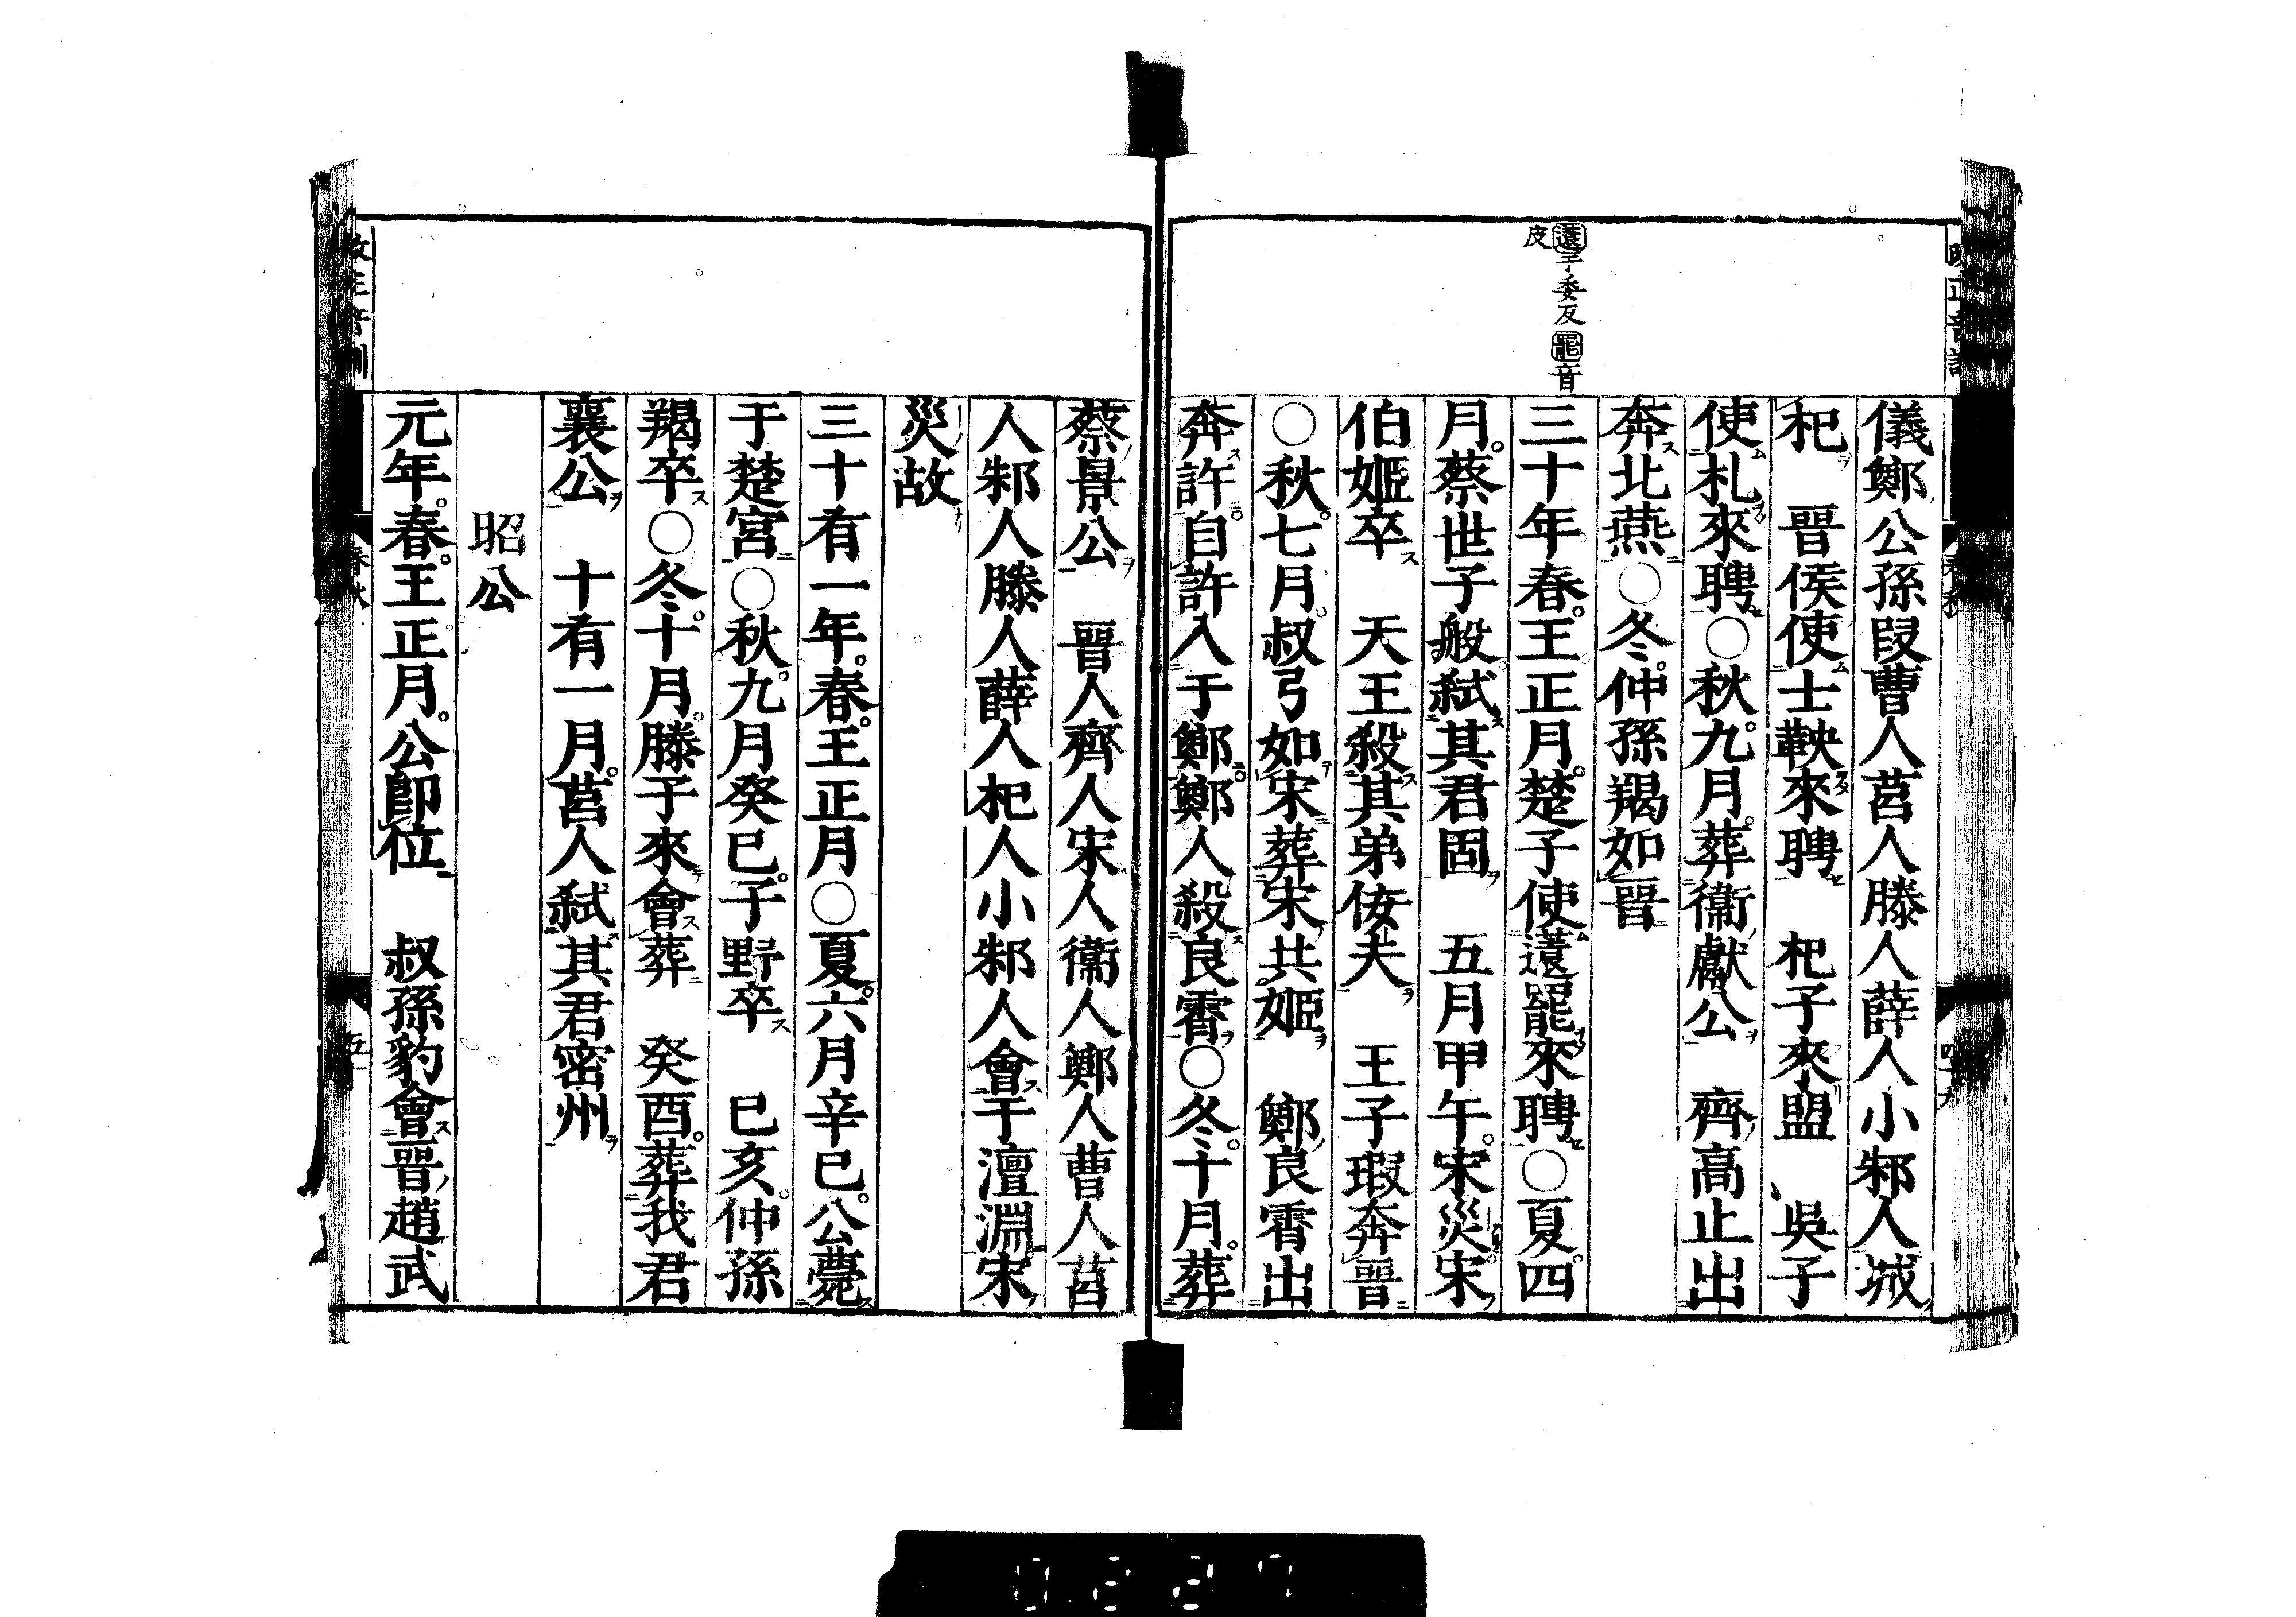 薳于委反罷音
皮
儀鄭公孫段曹人莒人滕人薛人小邾人城
杞　晉侯使士鞅來聘　杞子來盟　吳子
使札來聘○秋九月。葬衞獻公　齊高止出
奔北燕○冬。仲孫羯如晉
三十年春。王正月。楚子使薳罷來聘○夏。四
月。蔡世子般弑其君固　五月甲午。宋災。宋
伯姬卒　天王殺其弟佞夫　王子瑕奔晉
○秋。七月。叔弓如宋葬宋共姬　鄭良霄出
奔許。自許入于鄭。鄭人殺良霄○冬。十月。葬
蔡景公　晉人齊人宋人衞人鄭人曹人莒
人邾人滕人薛人杞人小邾人會于澶淵宋
災故
三十有一年。春。王正月○夏。六月辛巳。公薨
于楚宮○秋。九月癸巳。子野卒　巳亥。仲孫
羯卒○冬。十月。滕子來會葬　癸酉。葬我君
襄公　十有一月。莒人弑其君密州
昭公
元年。春。王正月。公卽位　叔孫豹會晉趙武
春秋